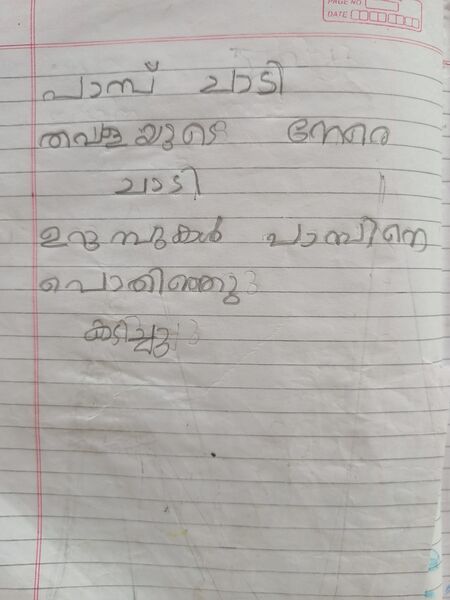 PAGE NO
DATE
പാമ്പ് ചാടി
തവളയുടെ നേരെ
ചാടി
ഉറുമ്പുകൾ പാമ്പിനെ
പൊതിഞ്ഞു
കടിച്ചു